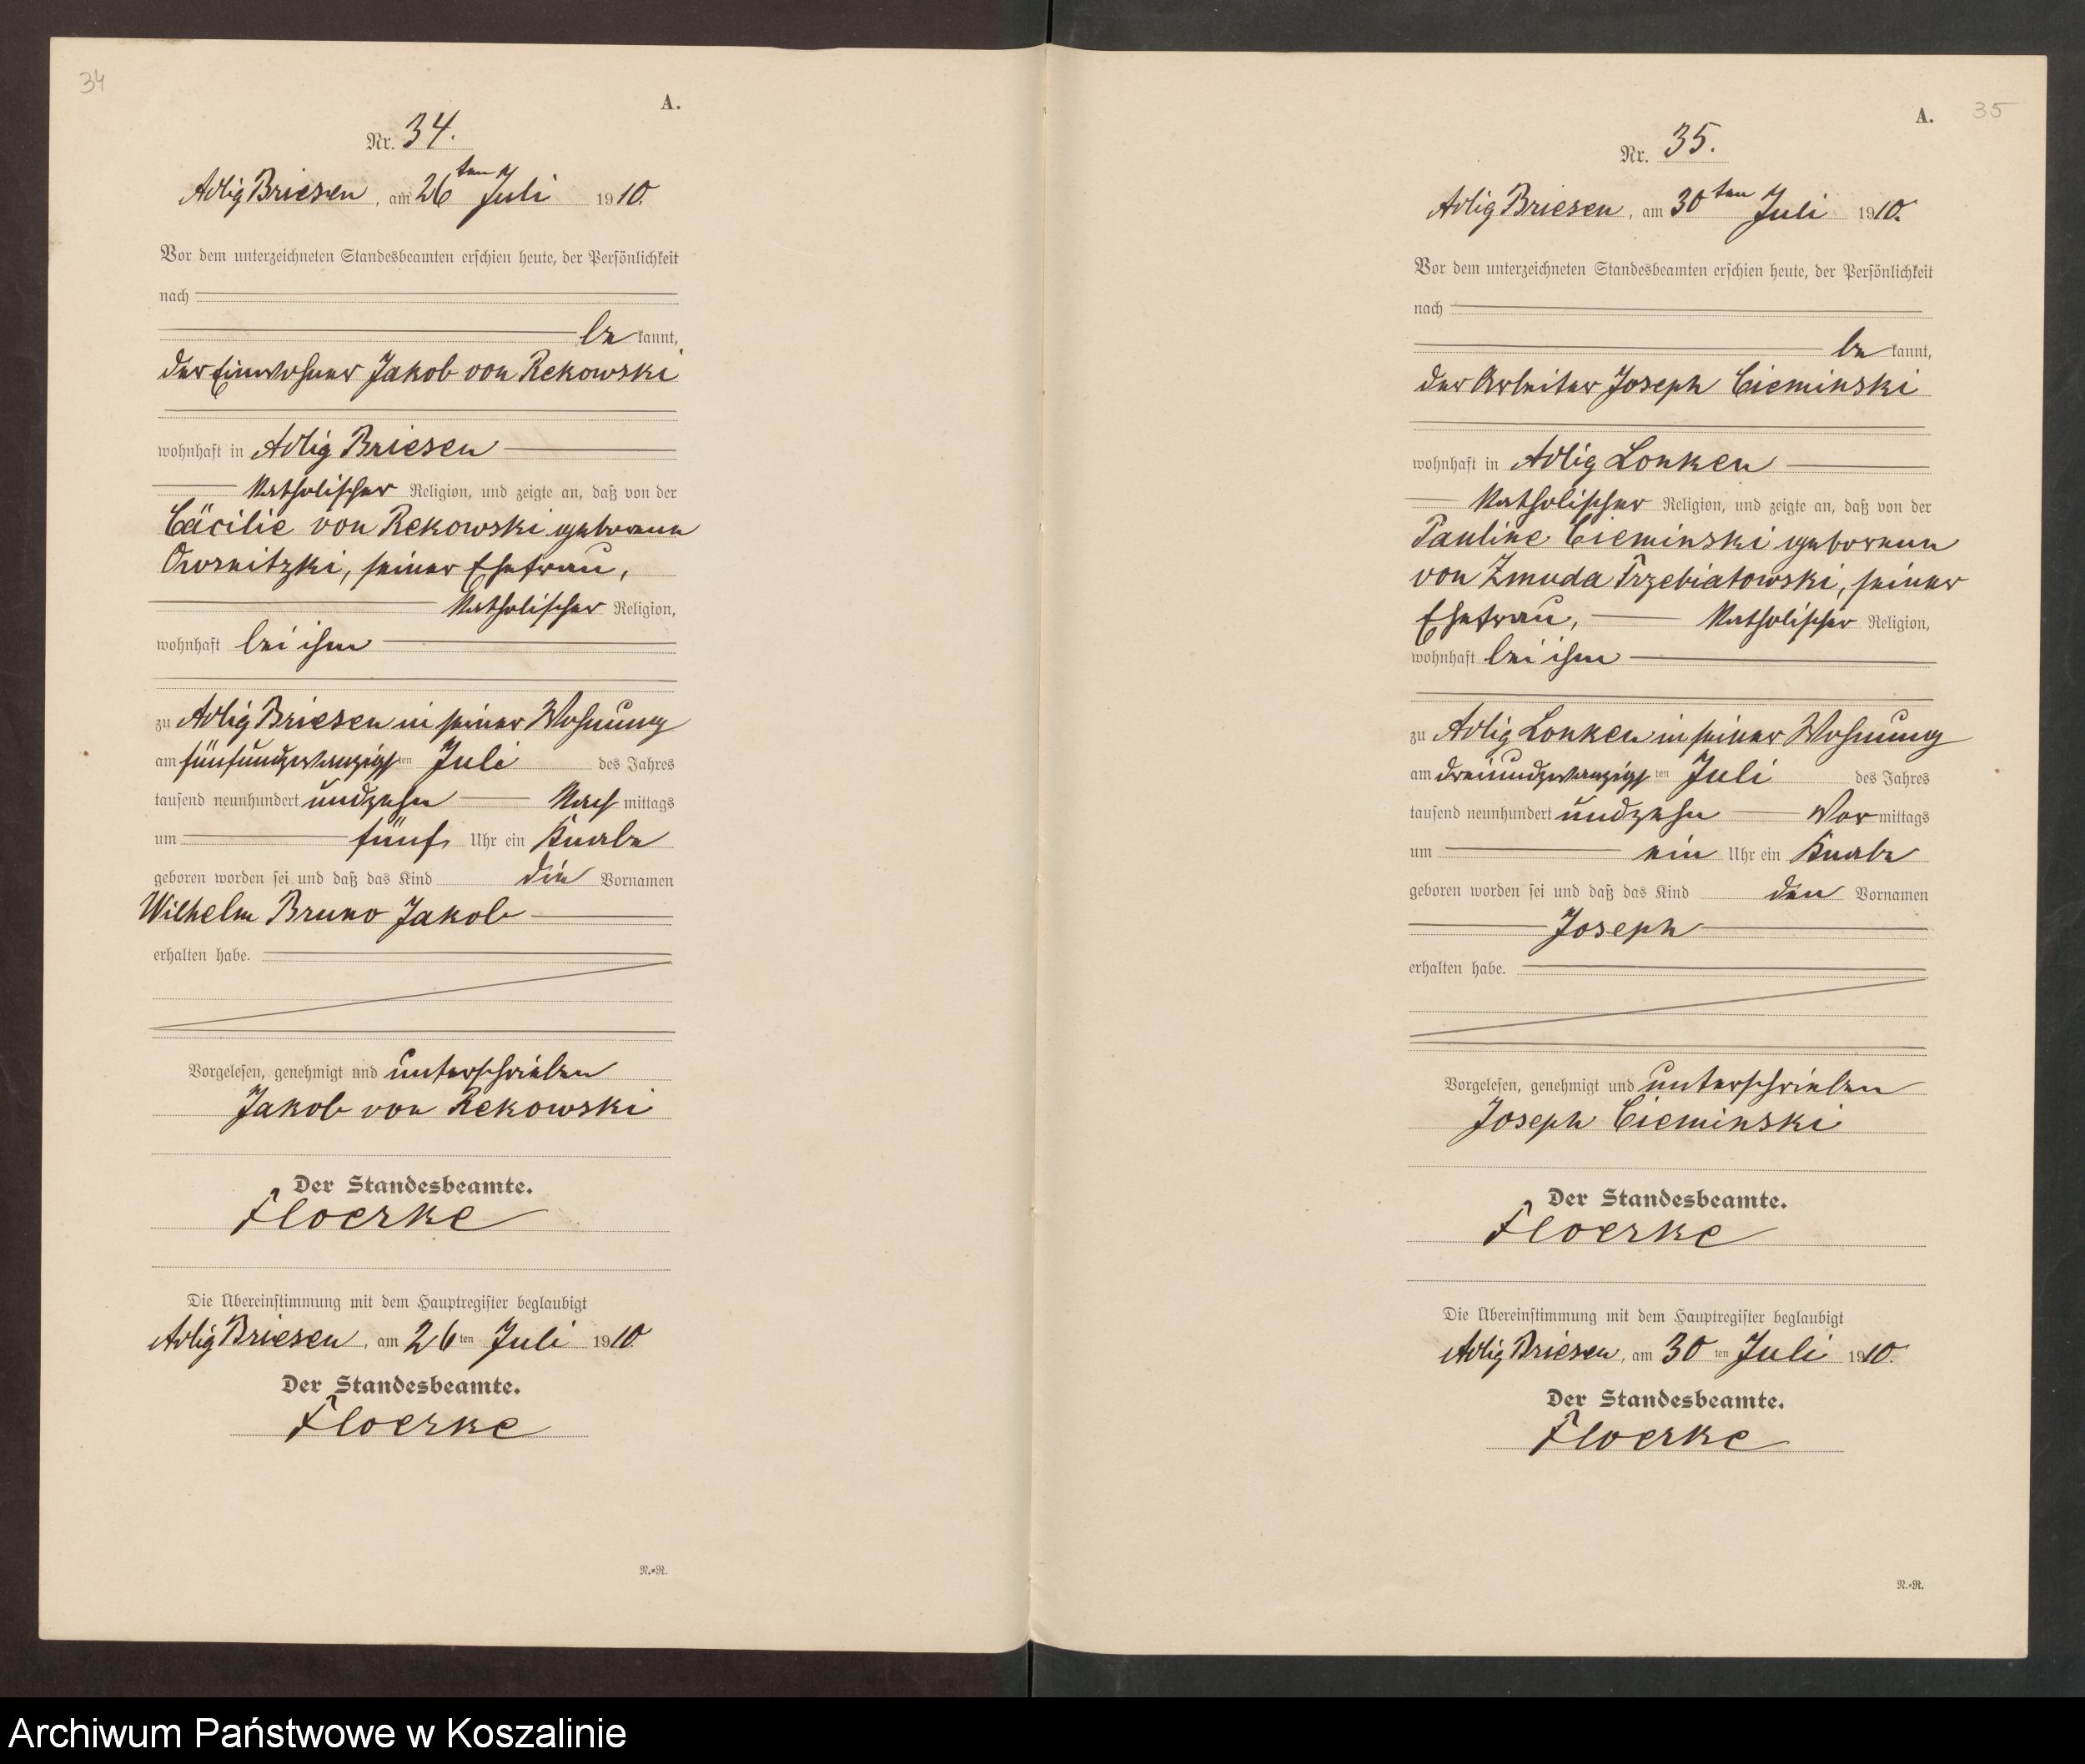 34
A.
Nr. 34.
Adlig Briesen, am 26ten Juli 1910.
Vor dem unterzeichneten Standesbeamten erschien heute, der Persönlichkeit
nach
be kannt,
der Einwohner Jakob von Rekowski
wohnhaft in Adlig Briesen
katholischer Religion, und zeigte an, daß von der
Cäcilie von Rekowski geborenen
seiner Ehefrau,
katholischer Religion,
wohnhaft bei ihm
zu Adlig Briesen in seiner Wohnung
am fünfundzwanzigsten Juli des Jahres
tausend neunhundert undzehn Nach mittags
um fünf Uhr ein Knabe
geboren worden sei und daß das Kind die Vornamen
Wilhelm Bruno Jakob
erhalten habe.
Vorgelesen, genehmigt und unterschrieben
Jakob von Rekowski
Der Standesbeamte.
Floerke
Die Übereinstimmung mit dem Hauptregister beglaubigt
Adlig Briesen, am 26ten Juli 1910.
Der Standesbeamte.
Floerke
N.=R.
35
A.
Nr. 35.
Adlig Briesen, am 30ten Juli 1910.
Vor dem unterzeichneten Standesbeamten erschien heute, der Persönlichkeit
nach
be kannt,
der Arbeiter Joseph Cieminski
wohnhaft in Adlig Lonken
katholischer Religion, und zeigte an, daß von der
Pauline Cieminski geborenen
von Zmuda Trzebiatowski, seiner
Ehefrau, katholischer Religion,
wohnhaft bei ihm
zu Adlig Lonken in seiner Wohnung
am dreiundzwanzigsten Juli des Jahres
tausend neunhundert undzehn Vor mittags
um ein Uhr ein Knabe
geboren worden sei und daß das Kind den Vornamen
Joseph
erhalten habe.
Vorgelesen, genehmigt und unterschrieben
Joseph Cieminski
Der Standesbeamte.
Floerke
Die Übereinstimmung mit dem Hauptregister beglaubigt
Adlig Briesen, am 30ten Juli 1910.
Der Standesbeamte.
Floerke
N.=R.
Archiwum Państwowe w Koszalinie